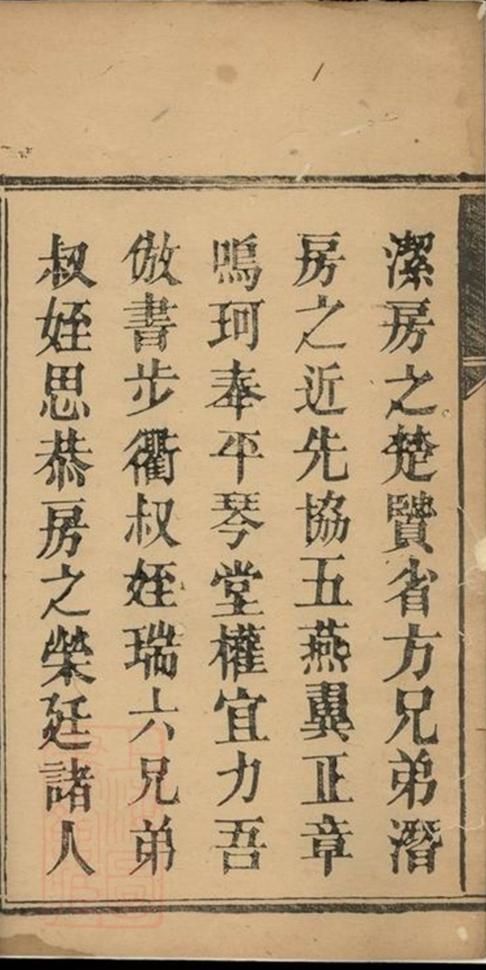 潔房之楚賢省方兄弟潛
房之近先協五燕翼正章
鳴珂奉平琴堂權宜力吾
倣書步衢叔姪瑞六兄弟
叔姪思恭房之榮廷諸人